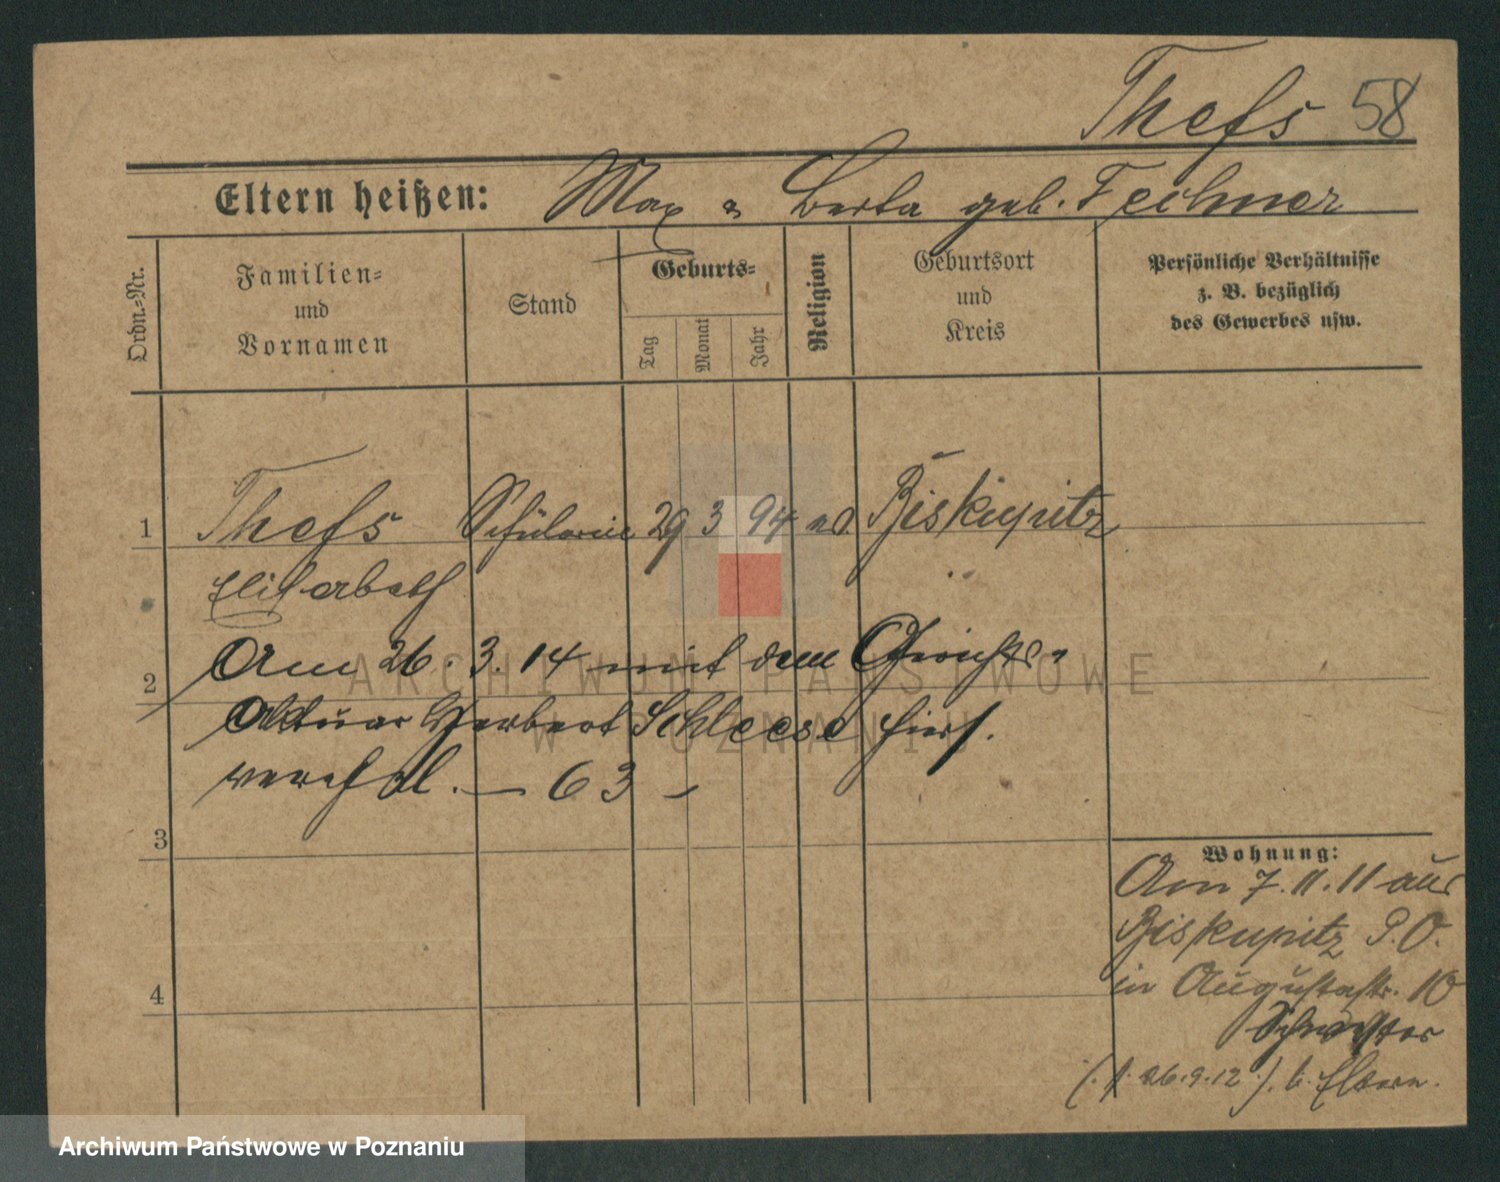 Thefs 58
Eltern heißen: Max & Berta geb. Feihner
Ordn.=Nr.
Familien=
und
Vornamen
Stand
Geburts=
Tag
Monat
Jahr
Religion
Geburtsort
und
Kreis
Persönliche Verhältnisse
z. B. bezüglich
des Gewerbes usw.
1 Thefs Schülerin 29 3 94 Biskupitz
Elisabeth
Am 26. 3. 14 mit dem Gerichts-
2
Aktuar Herbert Schleese hier
verehel. — 63 —
3
4
Wohnung:
Am 7. 11. 11 aus
Biskupitz P. O.
in Augustastr. 10
Schwester
(. 26.9.12.). b. Eltern.
ARCHIWUM PAŃSTWOWE
W POZNANIU
Archiwum Państwowe w Poznaniu